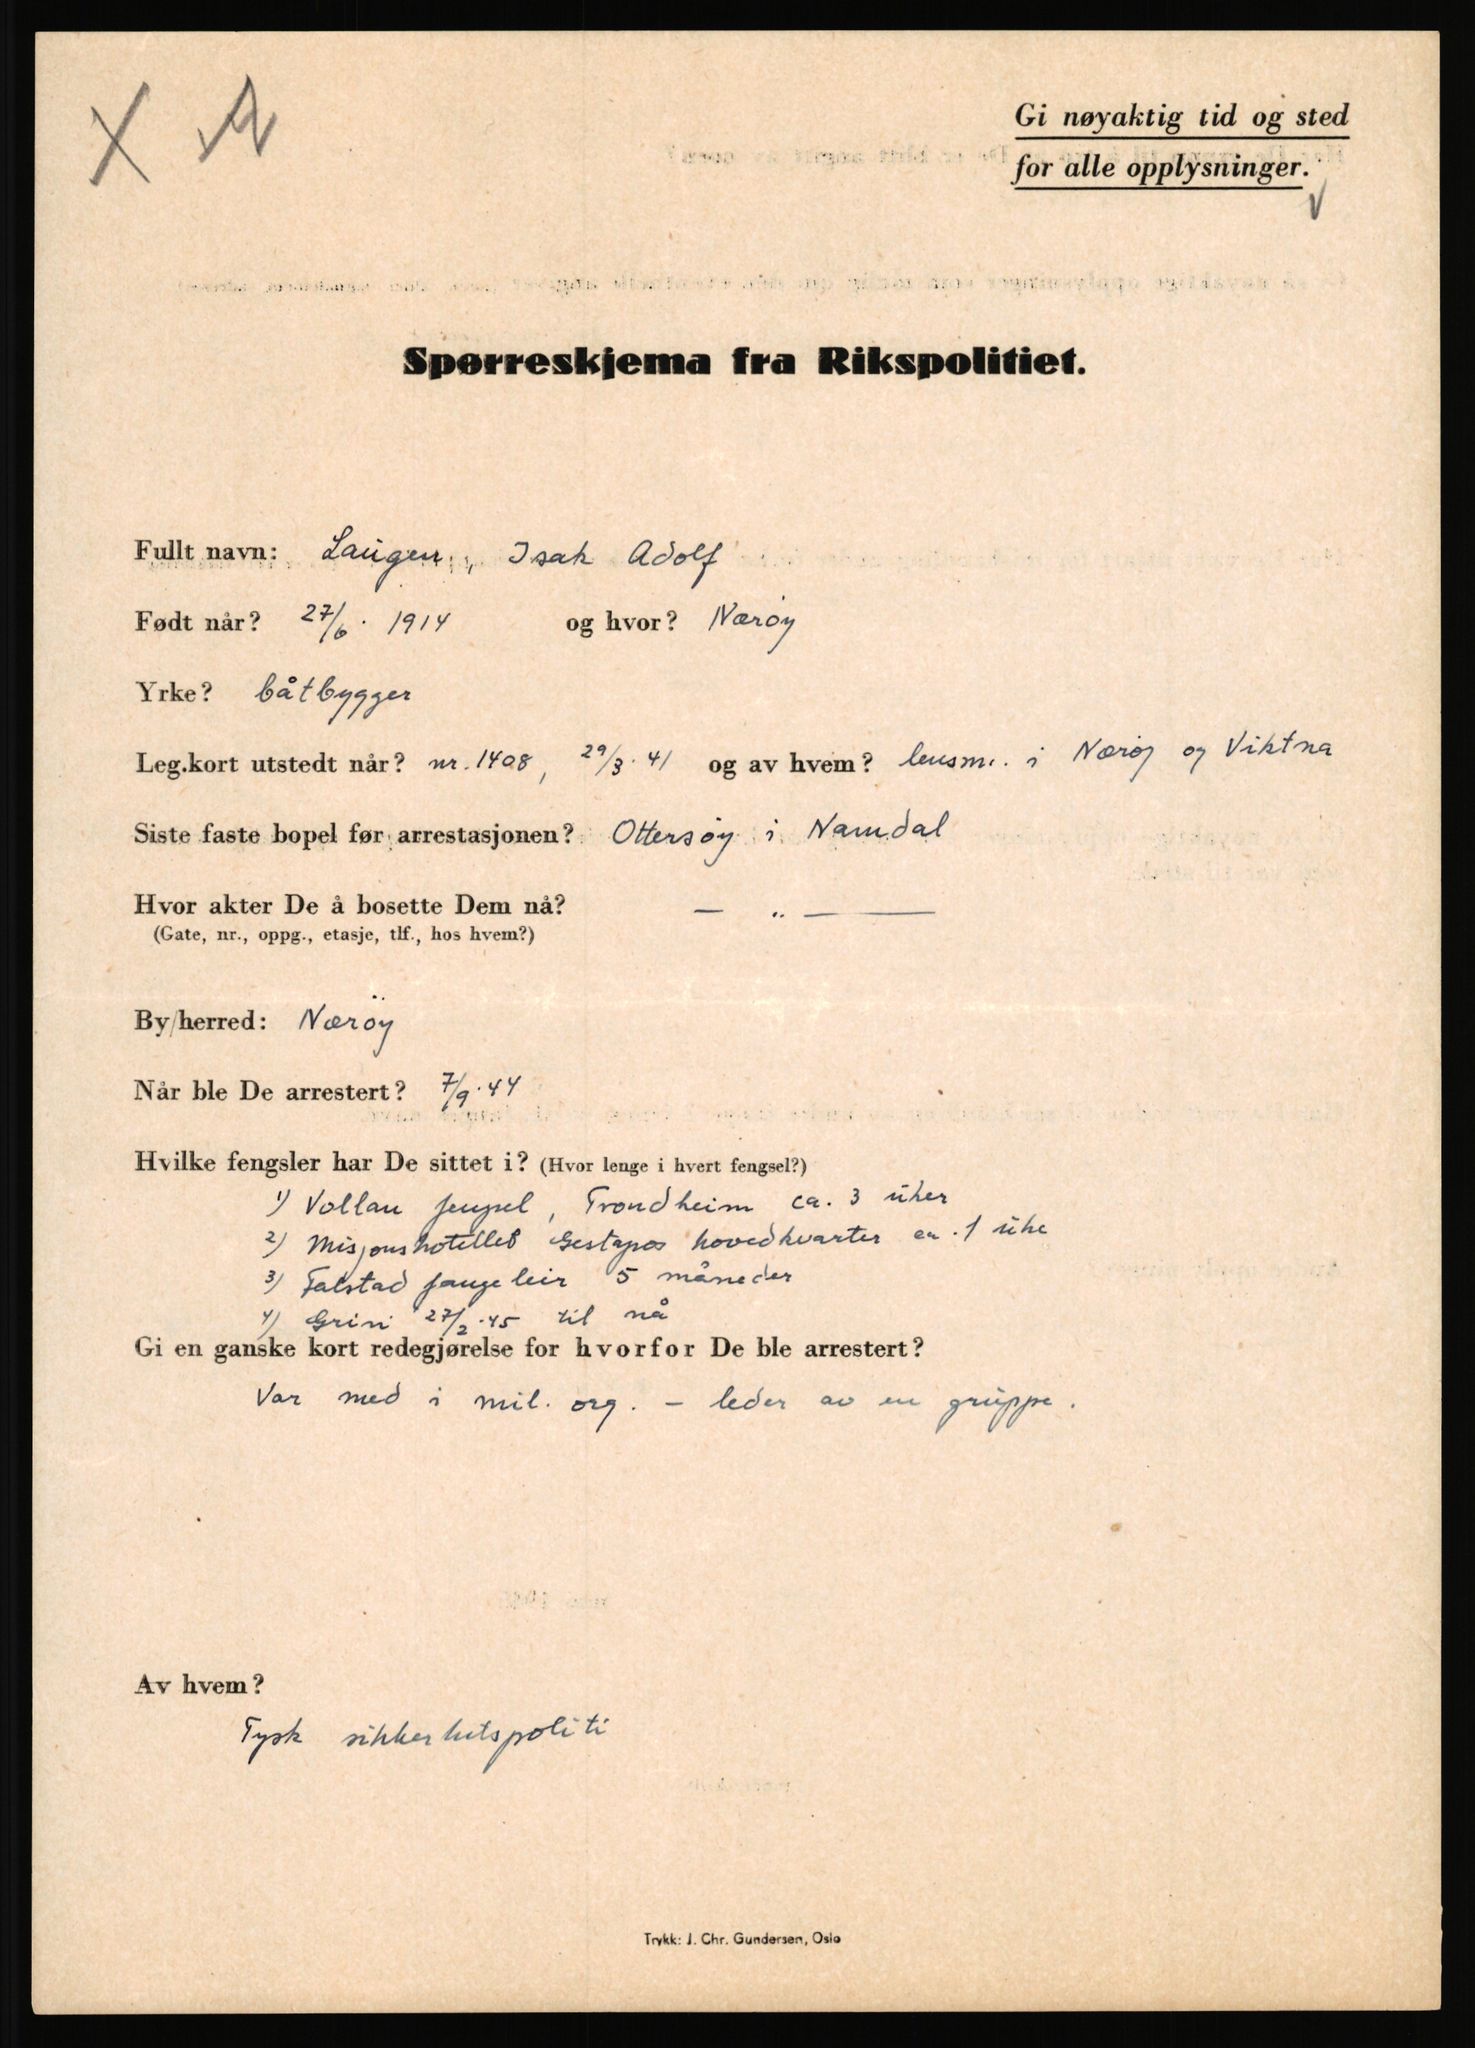 X A
Gi nøyaktig tid og sted
for alle opplysninger.
Spørreskjema fra Rikspolitiet.
Fullt navn: Laugen, Isak Adolf
Født når? 27/6. 1914 og hvor? Nærøy
Yrke? båtbygger
Leg.kort utstedt når? nr. 1408, 29/3. 41 og av hvem? lensm. i Nærøy og Viktna
Siste faste bopel før arrestasjonen? Ottersøy i Namdal
Hvor akter De å bosette Dem nå? — „ —
(Gate, nr., oppg., etasje, tlf., hos hvem?)
By/herred: Nærøy
Når ble De arrestert? 7/9. 44
Hvilke fengsler har De sittet i? (Hvor lenge i hvert fengsel?)
1) Vollan fengsel, Trondheim ca. 3 uker
2) Misjonshotellet Gestapos hovedkvarter ca. 1 uke
3) Falstad fangeleir 5 måneder
4) Grini 27/2. 45 til nå
Gi en ganske kort redegjørelse for hvorfor De ble arrestert?
Var med i mil. org. – leder av en gruppe.
Av hvem?
Tysk sikkerhetspoliti
Trykk: J. Chr. Gundersen, Oslo